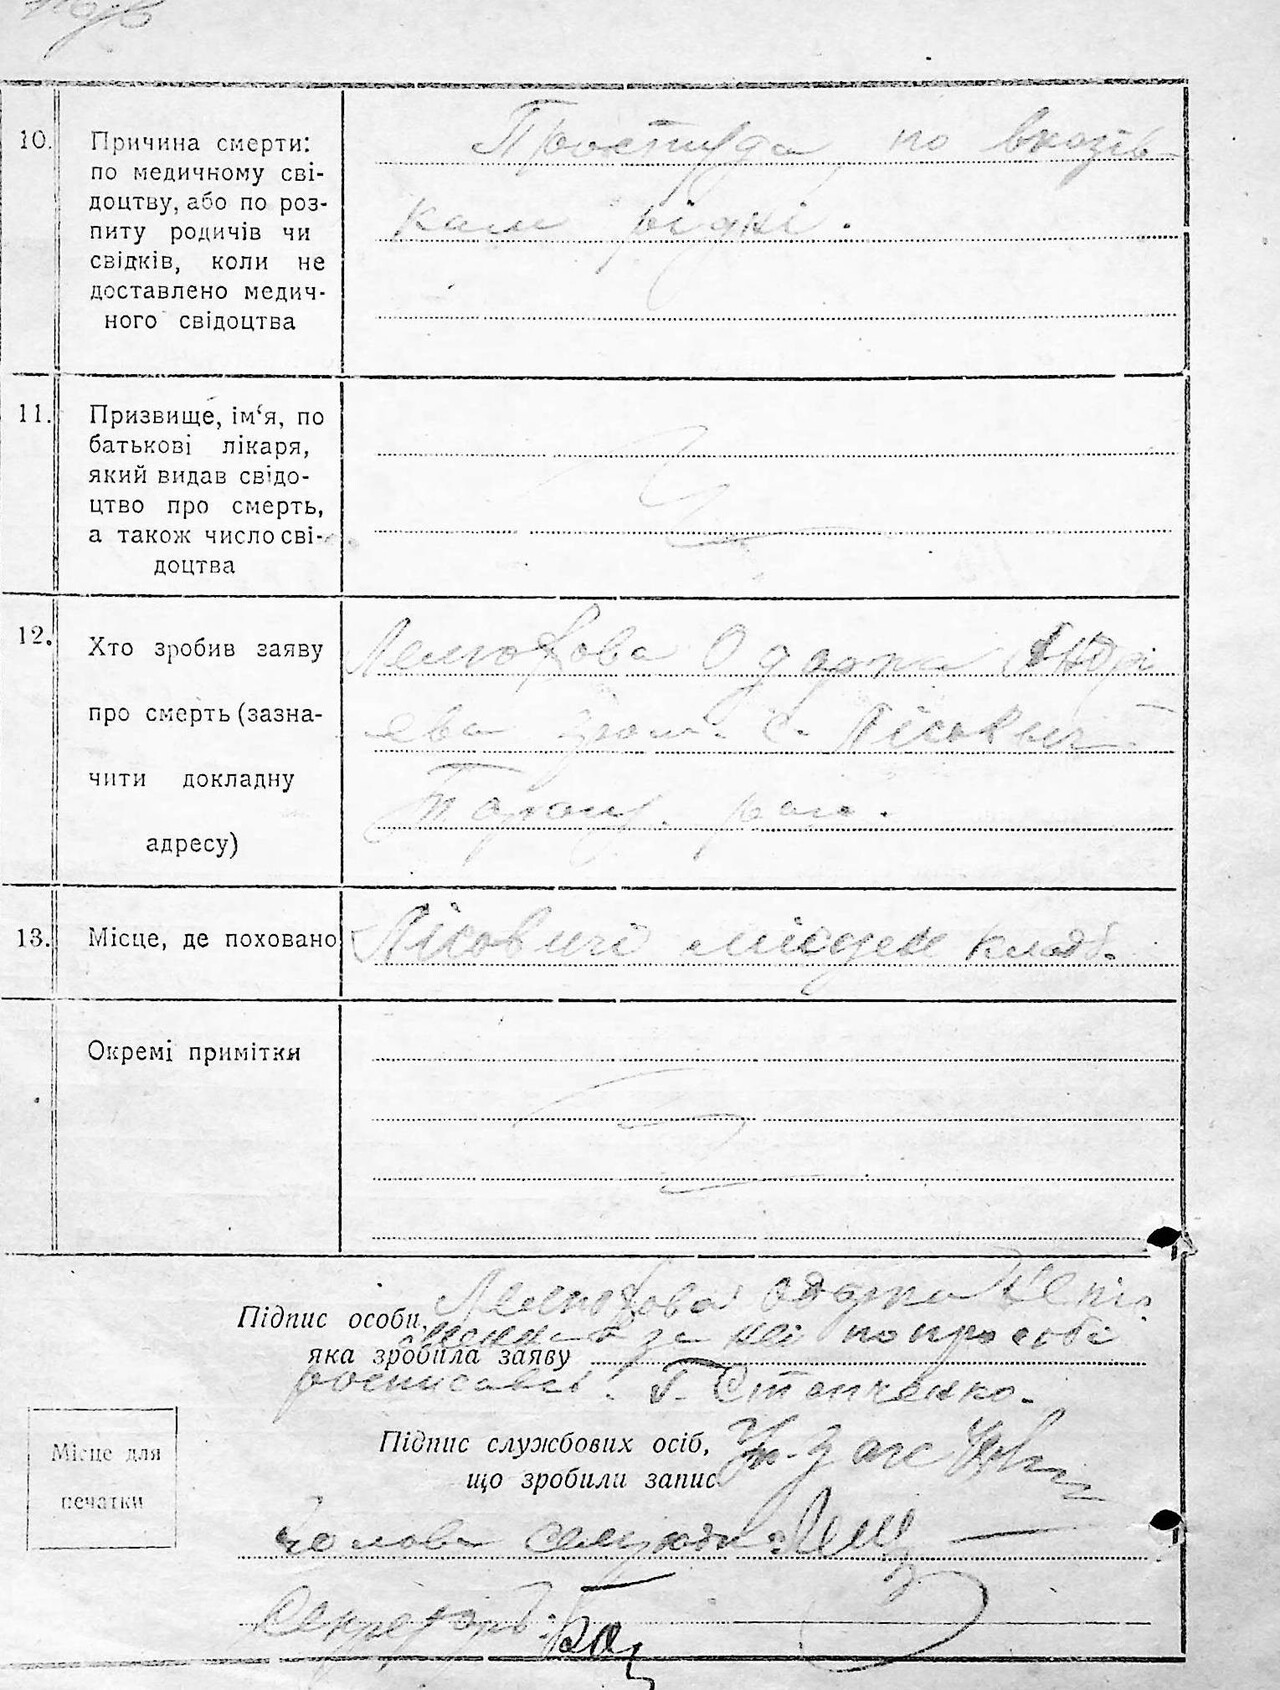 10. Причина смерти:
по медичному сві-
доцтву, або по роз-
питу родичів чи
свідків, коли не
доставлено медич-
ного свідоцтва
Простуда, по вказів-
кам рідні.
11. Призвище, ім‘я, по
батькові лікаря,
який видав свідо-
цтво про смерть,
а також число сві-
доцтва
12. Хто зробив заяву
про смерть (зазна-
чити докладну
адресу)
Одарка Андрі
ева с. Лісовичі
Таращ. рай.
13. Місце, де поховано
Лісовичі місцеве кладб.
Окремі примітки
Підпис особи,
яка зробила заяву
Одарка
за неї по просьбі
росписався Г. Степченко.
Підпис службових осіб,
що зробили запис
Місце для
печатки
Голова сельради
Секретарь